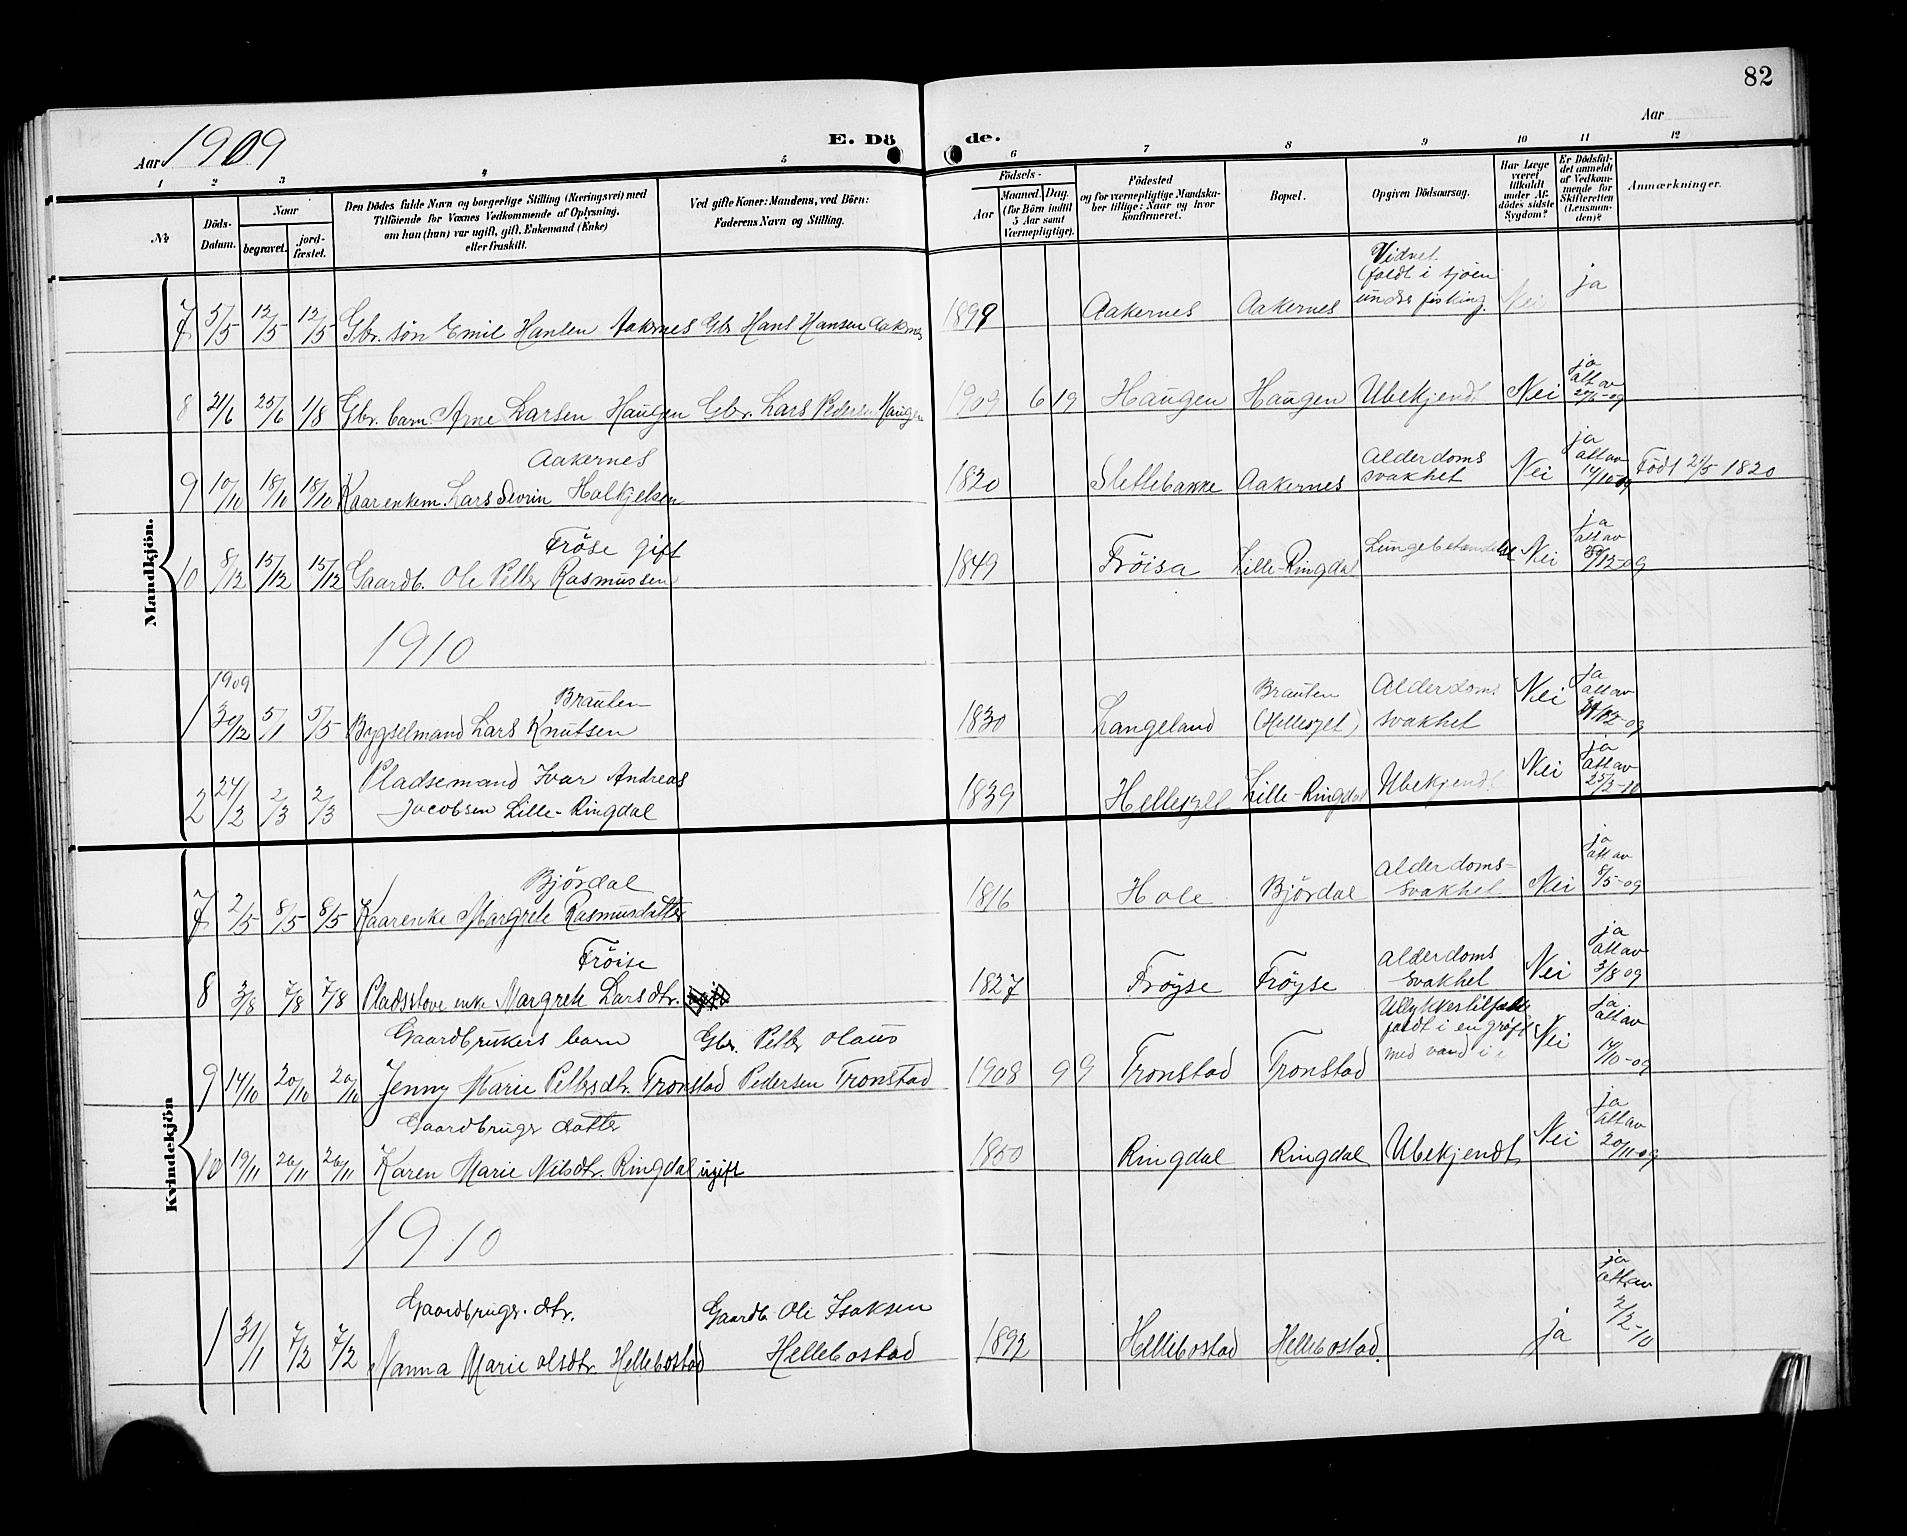 82
Aar 1909
E. Dö de.
Aar
1 2 3 4 5 6 7 8 9 10 11 12
No
Döds-Datum.
Naar
begravet. jordfæstet.
Den Dödes fulde Navn og borgerlige Stilling (Næringsvei) med
Tilföiende for Voxnes Vedkommende af Oplysning,
om han (hun) var ugift, gift, Enkemand (Enke)
eller fraskilt.
Ved gifte Koner: Mandens, ved Börn:
Faderens Navn og Stilling.
Födsels-
Aar
Maaned. Dag.
(for Börn indtil
5 Aar samt
Værnepligtige).
Födested
og for værnepligtige Mandskaber tillige: Naar og hvor
konfirmeret.
Bopæl.
Opgiven Dödsaarsag.
Har Læge været tilkaldt under Afdödes sidste Sygdom?
Er Dödsfaldet anmeldt af Vedkommende for Skifteretten (Lensmanden)?
Anmærkninger.
Mandkjön.
7 5/5 12/5 12/5 Gbr. søn Emil Hansen Aakernes Gbr Hans Hansen Aakernes 1899 Aakernes Aakernes
(faldt i sjøen
under fisking. Nei ja
8 21/6 25/6 1/8 Gbr. barn Arne Larsen Haugen Gbr. Lars Pedersen Haugen 1909 6 19 Haugen Haugen Ubekjendt Nei ja att av
Aakernes
9 10/10 18/10 18/10 Kaarenkem. Lars Sevrin Halkjelsen 1820 Slettebakke Aakernes Alderdoms
svakhet Nei ja att av 14/10-09 Født 21/5 1820
Frøse gift
10 8/12 15/12 15/12 Gaardb. Ole Petter Rasmussen 1849 Frøisa Lille-Ringdal Lungebetændelse Nei ja att av
1910
1909
Brauten
1 30/12 5/1 5/5 Bygselmand Lars Knutsen 1830 Langeland Brauten
(Hellesylt) Alderdoms
svakhet Nei ja att av
Pladsemand Ivar Andreas
2 24/2 2/3 2/3 Jacobsen Lille-Ringdal 1839 Hellesylt Lille-Ringdal Ubekjendt Nei ja att av 25/2-10
Kvindekjön
Bjørdal
7 2/5 8/5 8/5 Kaarenke Margrete Rasmusdatter 1816 Hole Bjørdal Alderdoms-
svakhet Nei ja att av 8/5-09
Frøise
8 3/8 7/8 7/8 Pladsslove enke Margrete Larsdtr. 1827 Frøyse Frøyse Alderdoms
svakhet Nei ja att av 3/8 09
Gaardbrukers barn Gbr. Petter Olaus
9 14/10 20/10 20/10 Jenny Marie Pettersdtr. Tronstad Pedersen Tronstad 1908 9 9 Tronstad Tronstad Ulykkestilfælde
faldt i en grøft
med vand i Nei ja att av 14/10-09
Gaardbrugr datter
10 19/11 26/11 26/11 Karen Marie Nilsdtr. Ringdal ugift 1850 Ringdal Ringdal Ubekjendt Nei ja att av 20/11-09
1910
Gaardbrugr. dtr. Gaardb. Ole Isaksen
1 31/1 7/2 7/2 Nanna Marie Olsdtr. Hellebostad Hellebostad Hellebostad Hellebostad. ja ja att av 2/2-10